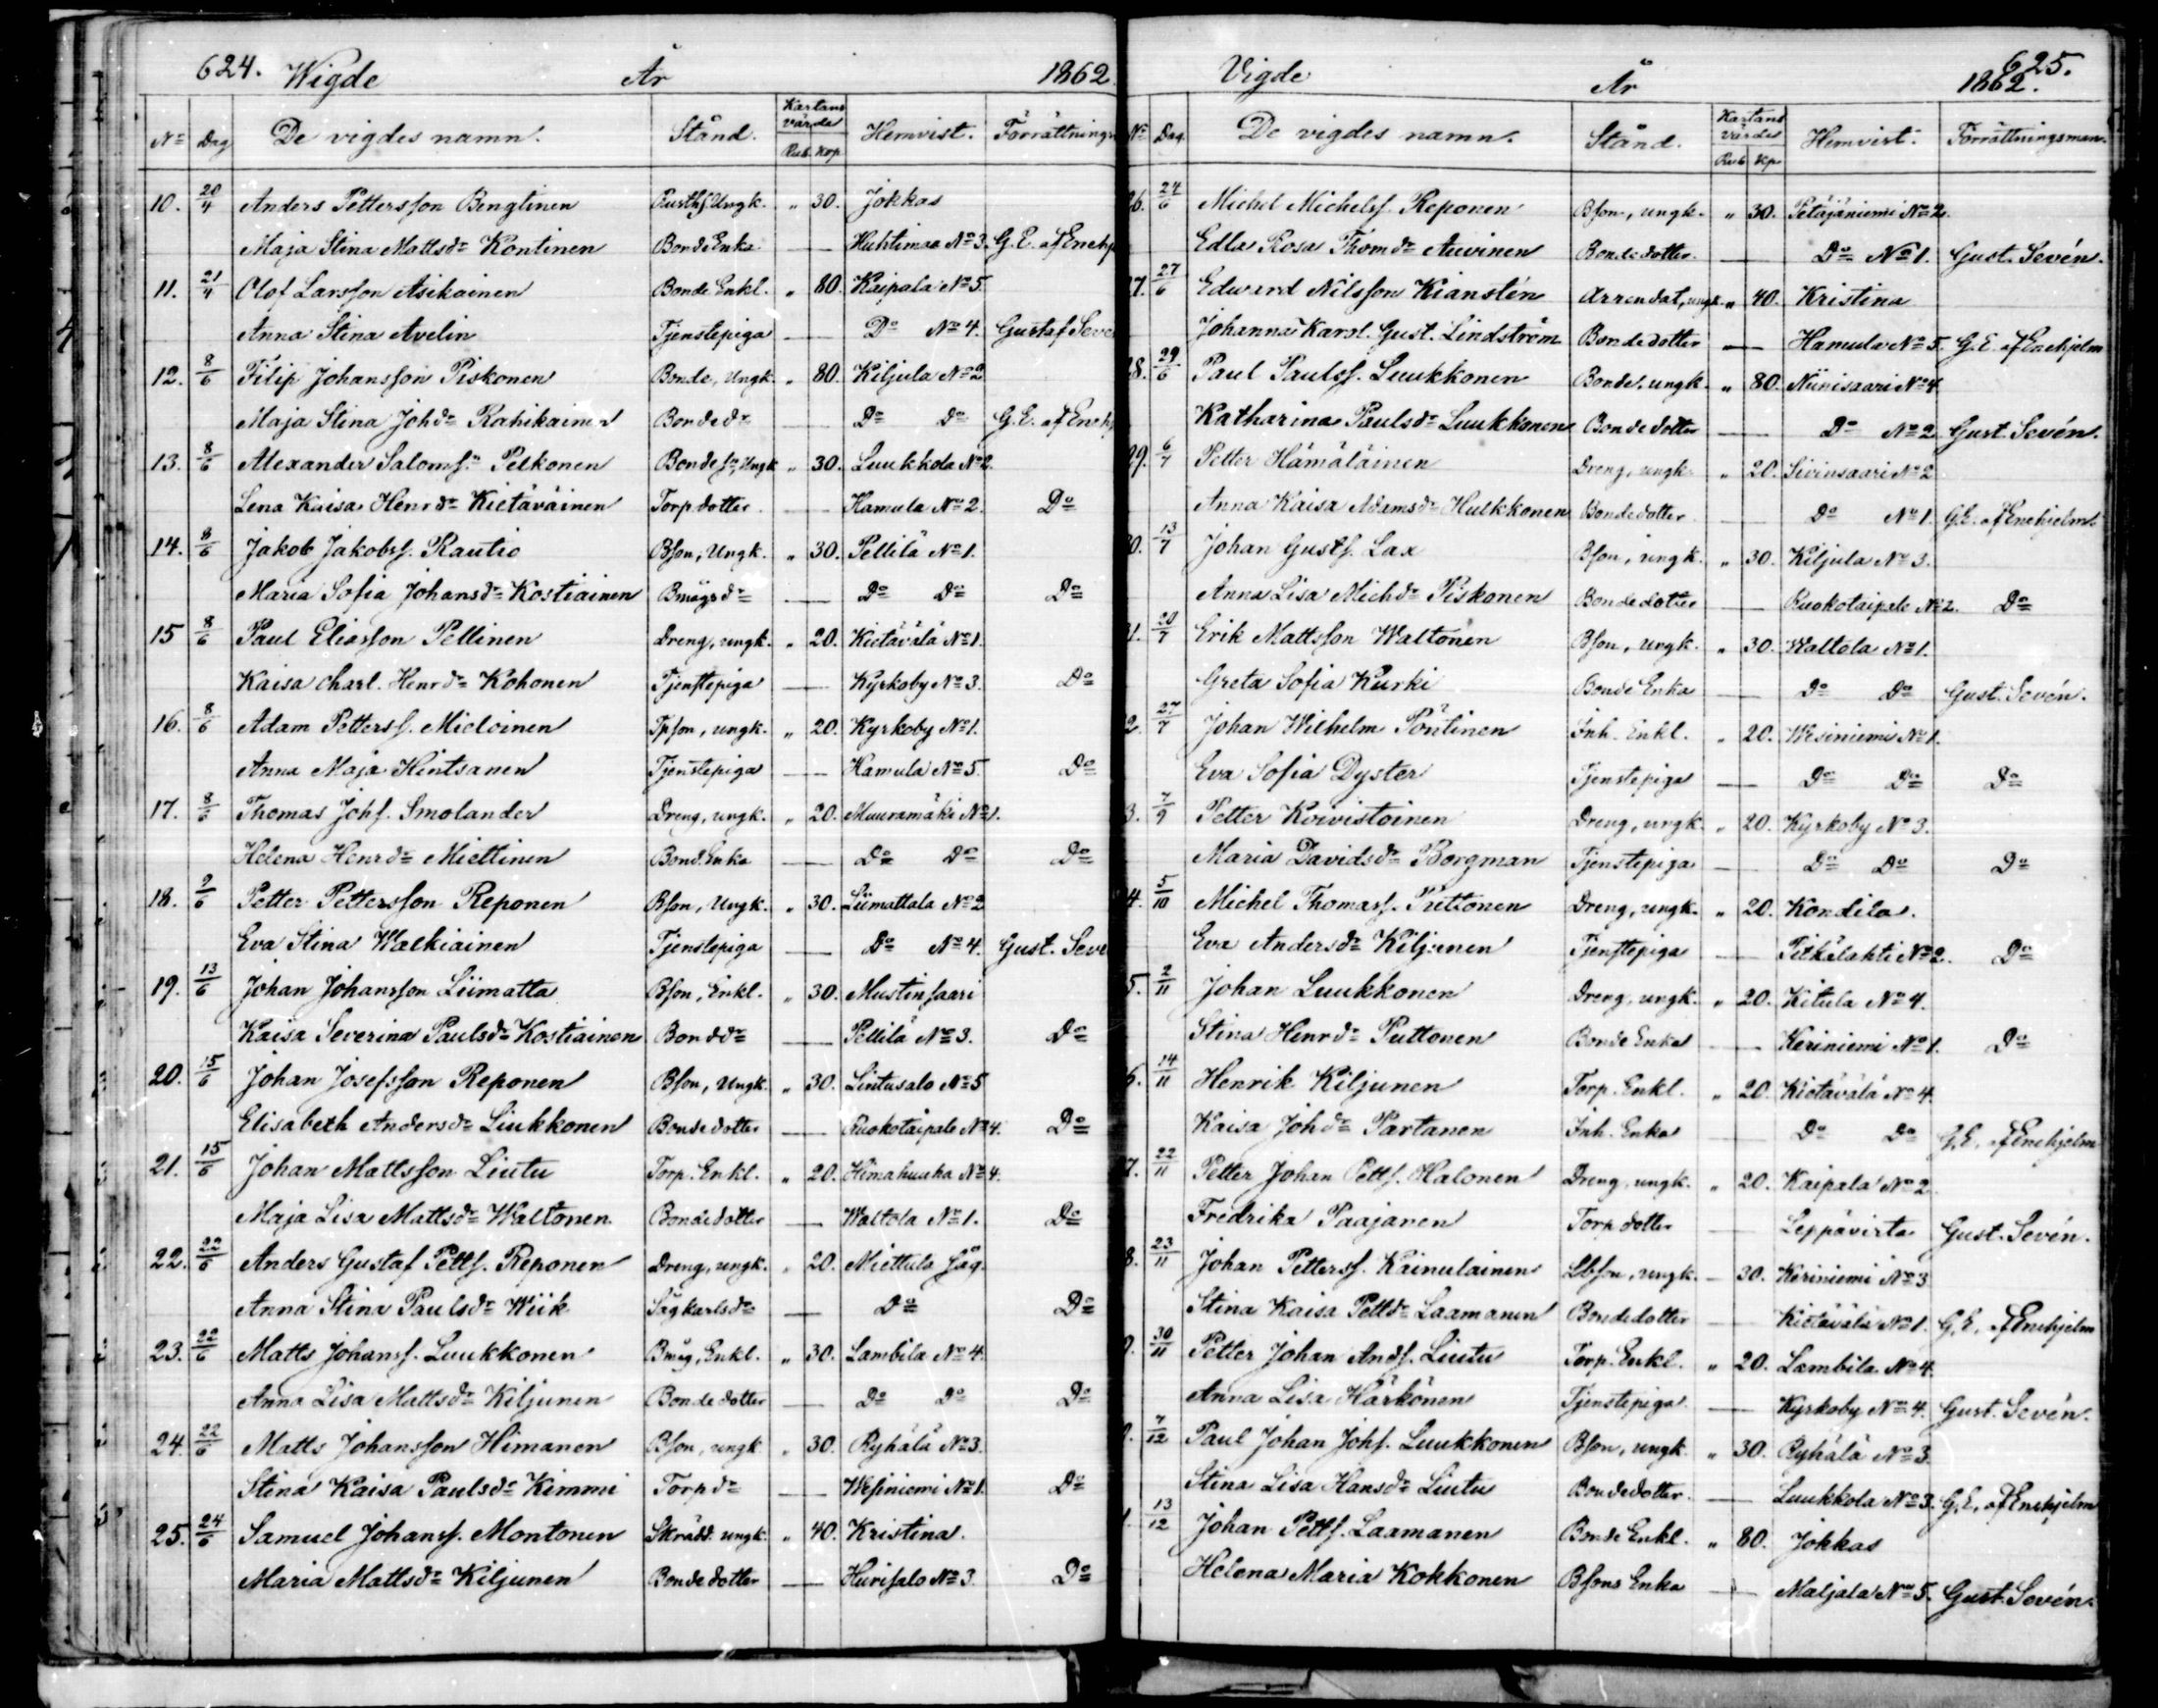 624. Wigde År 1862
No Dag De vigdes namn. Stånd. Kartans värde Rub. Kop Hemvist. Förrättnings
10. 20/4 Anders Pettersson Bengtinen Rusth. Ungk. " 30. Jokkas
Maja Stina Mattsdr Kontinen Bonde Enka — Huhtimaa No 3. G. E. af Enehj
11. 21/4 Olof Larsson Asikainen Bonde Enkl. " 80. Kaipala No 5.
Anna Stina Avelin Tjenstepiga — Do No 4. Gustaf Seve
12. 8/6 Filip Johansson Piskonen Bonde, Ungk. " 80. Kiljula No 2
Maja Stina Johdr Rahikainen Bondedr — Do Do G. E. af Eneh
13. 8/6 Alexander Saloms. Pelkonen Bondesn, Ungk " 30. Luukkola No 2.
Lena Kaisa Henrdr Kietäväinen Torpdotter — Hamula No 2. Do
14. 8/6 Jakob Jakobss. Rautio Bson, Ungk. " 30. Pellilä No 1.
Maria Sofia Johansdr Kostiainen Bmågsdr — Do Do Do
15 8/6 Paul Eliasson Pellinen Dreng, ungk. " 20. Kietävälä No 1.
Kaisa Charl. Henrdr Kohonen Tjenstepiga — Kyrkoby No 3. Do
16. 8/6 Adam Petterss. Mieloinen Tpson, ungk. " 20. Kyrkoby No 1.
Anna Maja Hintsanen Tjenstepiga — Hamula No 5. Do
17. 8/6 Thomas Johs. Smolander Dreng, ungk. " 20. Muuramäki No 1.
Helena Henrdr Miettinen Bond. Enka — Do Do Do
18. 9/6 Petter Pettersson Reponen Bson, Ungk. " 30. Liimattala No 2
Eva Stina Walkiainen Tjenstepiga — Do No 4. Gust. Seve
19. 13/6 Johan Johansson Liimatta Bson, Enkl. " 30. Mustinsaari
Kaisa Severina Paulsdr Kostiainen Bonddr — Pellilä No 3. Do
20. 15/6 Johan Josefsson Reponen Bson, Ungk. " 30. Lintusalo No 5
Elisabeth Andersdr Liukkonen Bondedotter — Ruokotaipale No 4. Do
21. 15/6 Johan Mattsson Lintu Torp. Enkl. " 20. Himahuuha No 4.
Maja Lisa Mattsdr Waltonen Bondedotter — Waltola No 1. Do
22. 22/6 Anders Gustaf Petts. Reponen Dreng, ungk. " 20. Miettula Såg.
Anna Stina Paulsdr Wiik Sågkarlsdr — Do Do
23. 22/6 Matts Johanss. Luukkonen Bmåg, Enkl. " 30. Lambila No 4.
Anna Lisa Mattsdr Kiljunen Bondedotter — Do Do Do
24. 22/6 Matts Johansson Himanen Bson, ungk " 30. Ryhälä No 3.
Stina Kaisa Paulsdr Kimmi Torpdr — Wesiniemi No 1. Do
25. 24/6 Samuel Johanss. Montonen Skrädd. ungk. " 40. Kristina.
Maria Mattsdr Kiljunen Bondedotter — Hurisalo No 3. Do
Vigde År 1862. 625.
No Dag. De vigdes namn. Stånd. Kartans värdes Rub Kp Hemvist. Förrättningsman.
26. 24/6 Michel Michelss. Reponen Bson, ungk. " 30. Petäjäniemi No 2.
Edla Rosa Thomdr Auvinen Bondedotter. — Do No 1. Gust. Sevén.
27. 27/6 Edward Nilsson Kianstén Arrendat, ungk. " 40. Kristina
Johanna Karol. Gust. Lindström Bondedotter — Hamula No 5. G. E. af Enehjelm
28. 29/6 Paul Paulss. Luukkonen Bonde, ungk. " 80. Niinisaari No 4.
Katharina Paulsdr Luukkonen Bondedotter — Do No 2 Gust. Sevén.
29. 6/7 Petter Hämäläinen Dreng, ungk. " 20. Sivinsaari No 2
Anna Kaisa Adamsdr Hulkkonen Bondedotter — Do No 1. G. E. af Enehjelm.
30. 13/7 Johan Gusts. Lax Bson, ungk. " 30. Kiljula No 3.
Anna Lisa Michdr Piskonen Bondedotter — Ruokotaipale No 2. Do
31. 20/7 Erik Mattsson Waltonen Bson, ungk. " 30. Waltola No 1.
Greta Sofia Kurki Bonde Enka — Do Do Gust. Sevén.
2. 27/7 Johan Wilhelm Pöntinen Inh. Enkl. " 20. Wesiniemi No 1.
Eva Sofia Dyster Tjenstepiga — Do Do Do
3. 7/9 Petter Koivistoinen Dreng, ungk. " 20. Kyrkoby No 3.
Maria Davidsdr Borgman Tjenstepiga — Do Do Do
4. 5/10 Michel Thomass. Puttonen Dreng, ungk. " 20. Kondila.
Eva Andersdr Kiljunen Tjenstepiga — Pitkälahti No 2. Do
5. 2/11 Johan Luukkonen Dreng, ungk. " 20. Kitula No 4.
Stina Henrdr Puttonen Bonde Enka — Keriniemi No 1. Do
6. 14/11 Henrik Kiljunen Torp. Enkl. " 20. Kietävälä No 4.
Kaisa Johdr Partanen Inh. Enka — Do Do G. E. af Enehjelm
7. 22/11 Petter Johan Petts. Halonen Dreng, ungk. " 20. Kaipala No 2
Fredrika Paajanen Torpdotter — Leppävirta Gust. Sevén.
8. 23/11 Johan Petterss. Kainulainen Lbson, ungk. — 30. Keriniemi No 3
Stina Kaisa Pettdr Laamanen Bondedotter — Kietävälä No 1. G. E. af Enehjelm
9. 30/11 Petter Johan Ands. Lintu Torp. Enkl. " 20. Lambila No 4.
Anna Lisa Härkönen Tjenstepiga — Kyrkoby No 4. Gust. Sevén.
0. 7/12 Paul Johan Johs. Luukkonen Bson, ungk " 30. Ryhälä No 3
Stina Lisa Hansdr Lintu Bondedotter. — Luukkola No 3. G. E. af Enehjelm
1. 13/12 Johan Petts. Laamanen Bonde Enkl. " 80. Jokkas
Helena Maria Kokkonen Bsons Enka — Maljala No 5. Gust. Sevén.